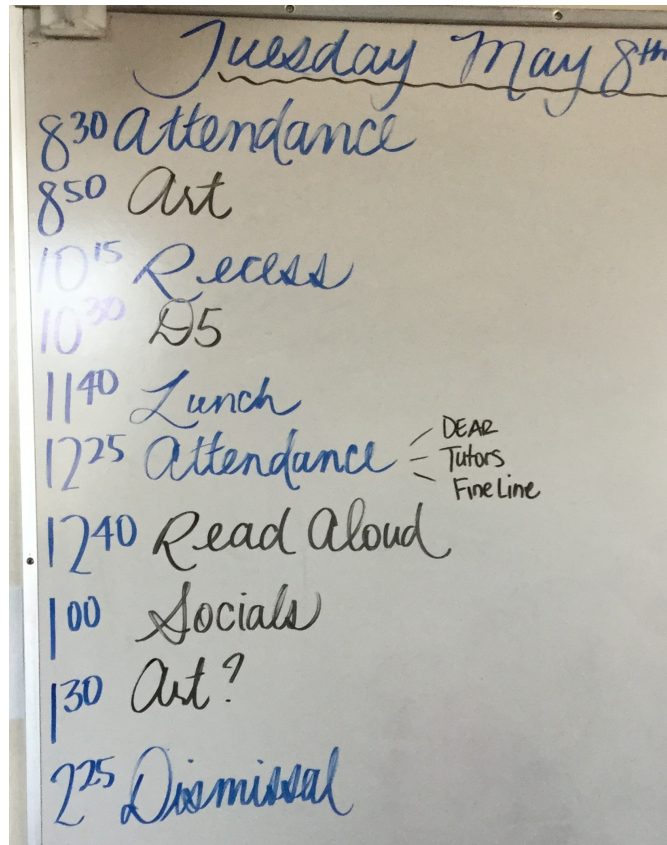 Tuesday May 8th
8:30 Attendance
8:50 Art
10:15 Recess
10:30 D5
11:40 Lunch
12:25 Attendance
DEAR
Tutors
Fine Line
12:40 Read Aloud
1:00 Socials
1:30 Art?
2:25 Dismissal